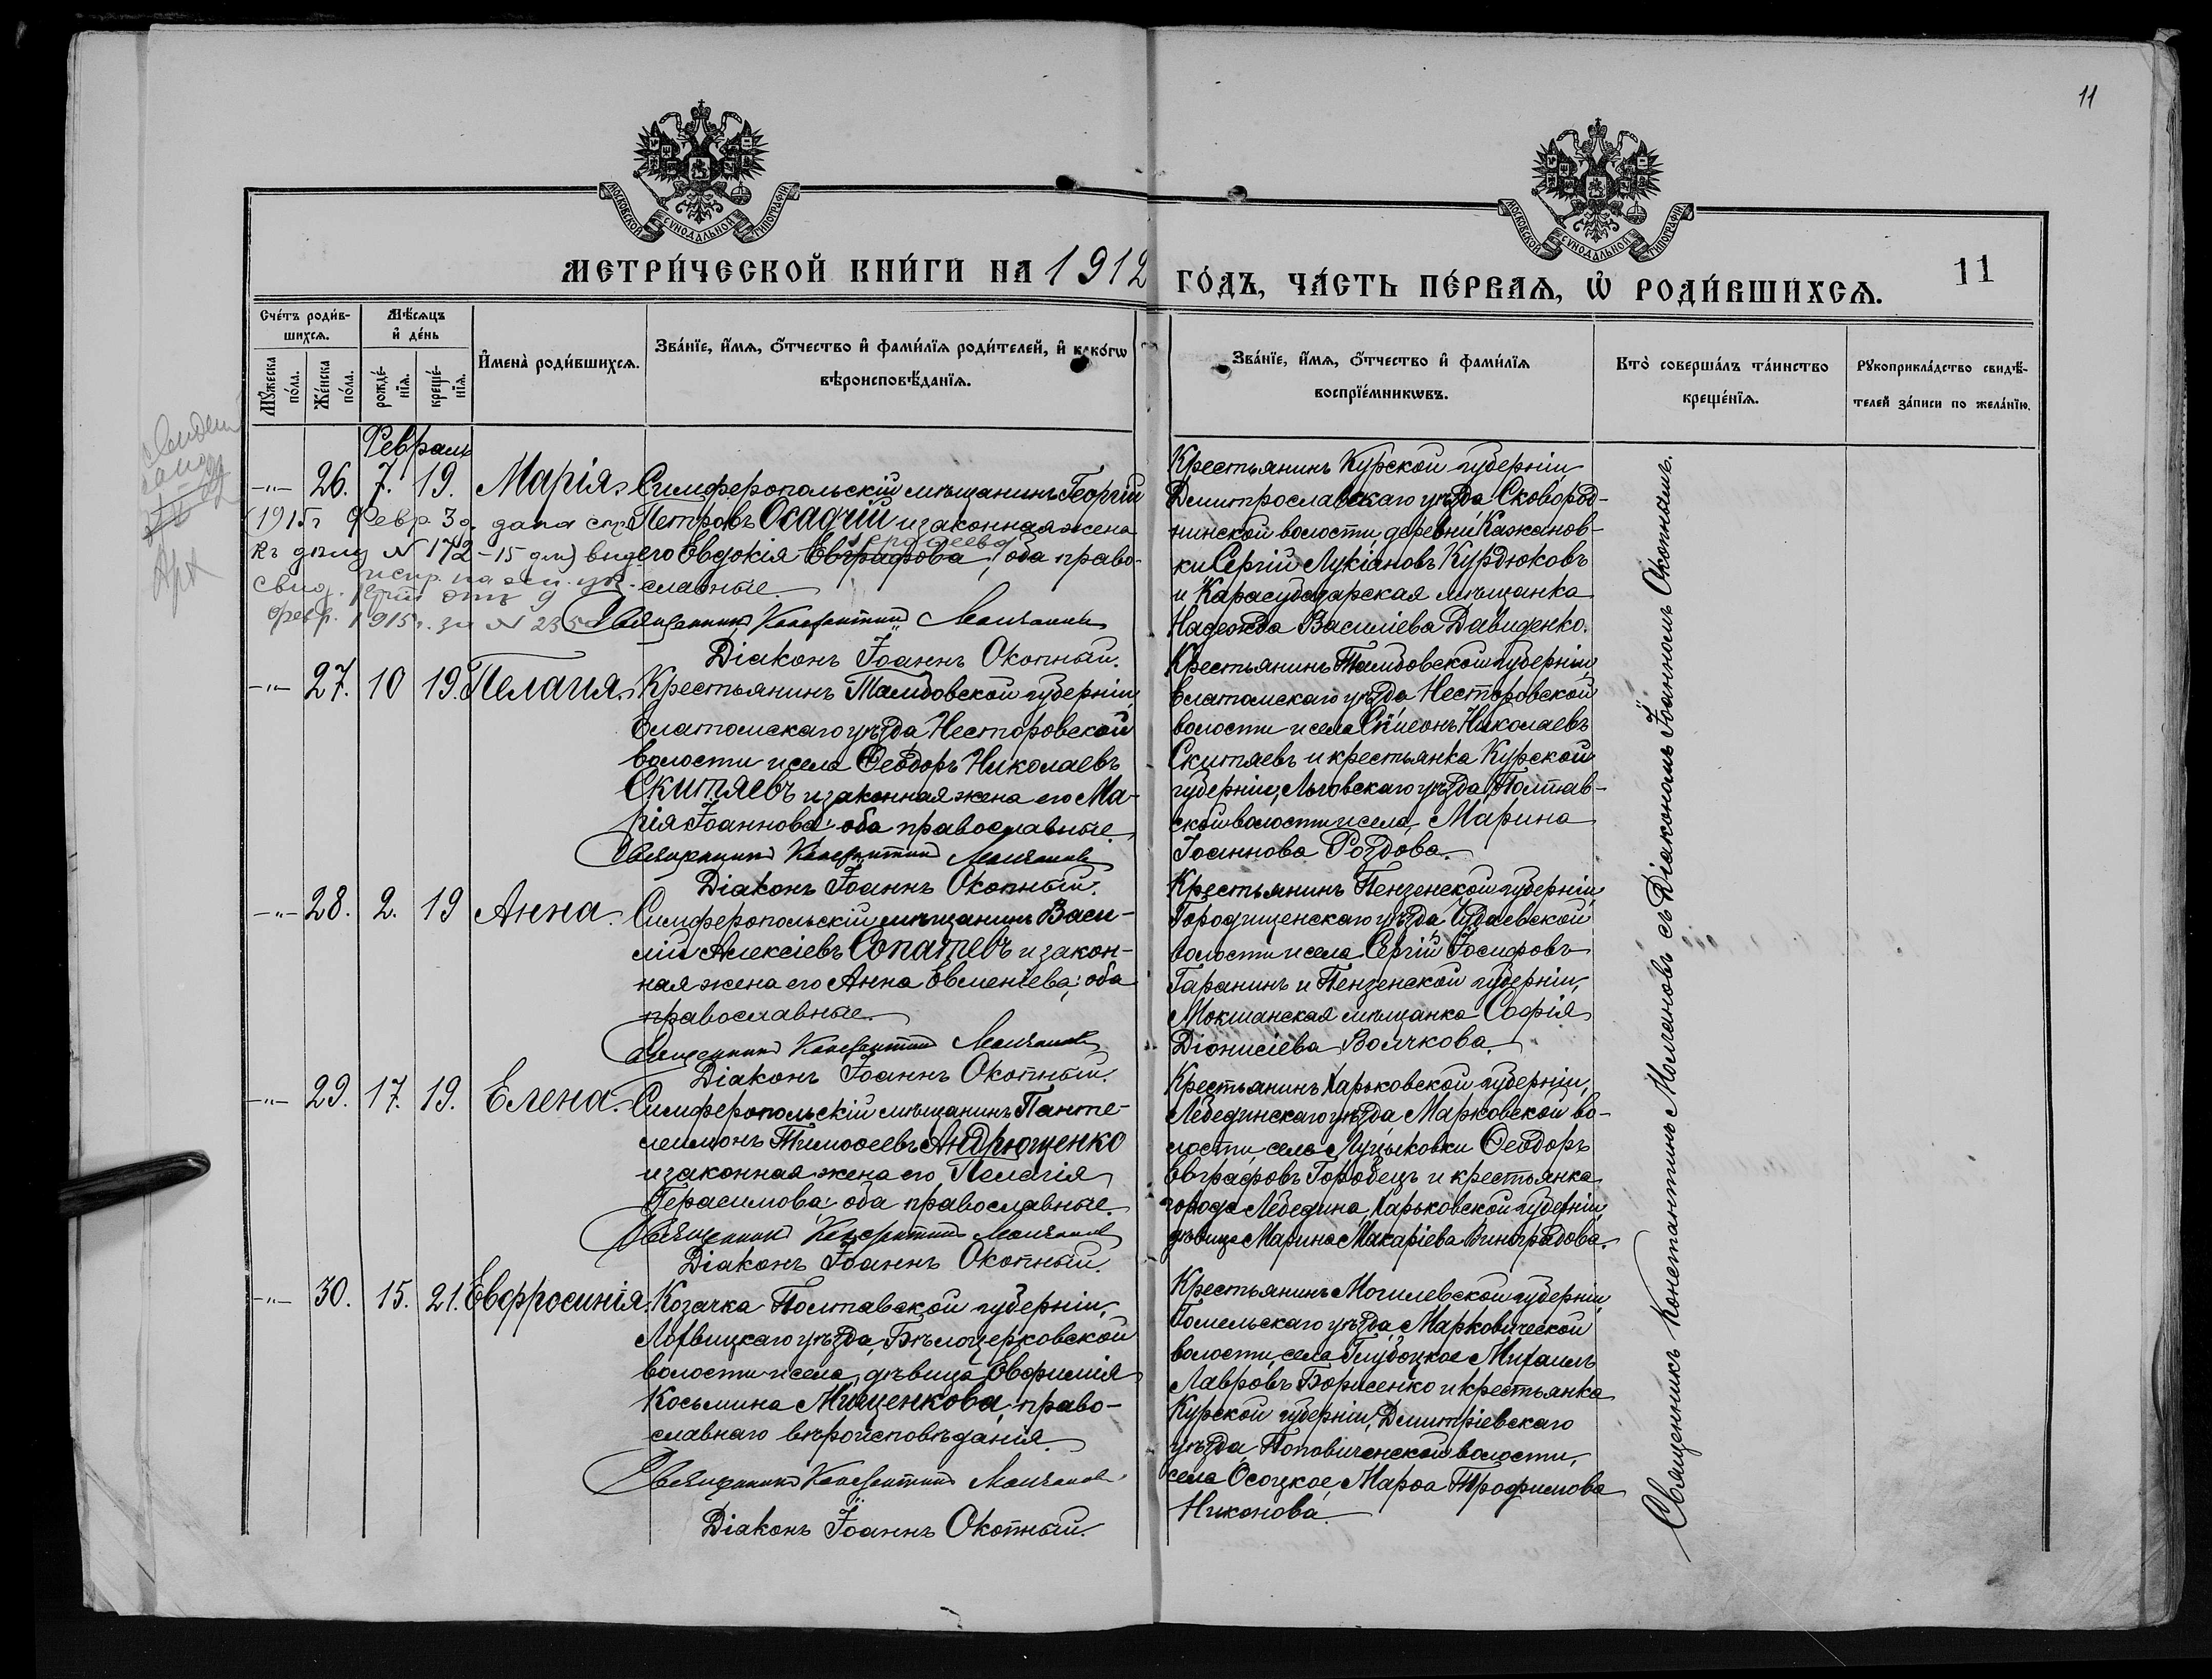 11
МОСКОВСКОЙ СѴНОДАЛЬНОЙ ТИПОГРАФІИ
МОСКОВСКОЙ СѴНОДАЛЬНОЙ ТИПОГРАФІИ
МЕТРИ́ЧЕСКОЙ КНИ́ГИ НА 1912 ГО́ДЪ, ЧА́СТЬ ПЕ́РВАѦ, Ѡ РОДИ́ВШИХСѦ.
11
Сче́тъ роди́в-
шихсѧ.
Мꙋ́жеска по́ла.
Же́нска по́ла.
Мѣ́сѧцъ
и де́нь
рожде́-
нїѧ.
креще́-
нїѧ.
Имена̀ роди́вшихсѧ.
Зва́нїе, и́мѧ, ѻ́тчество и фами́лїѧ роди́телей, и како́гѡ
вѣроисповѣ́данїѧ.
Зва́нїе, и́мѧ, ѻ́тчество и фами́лїѧ
воспрїе́мникѡвъ.
Кто̀ соверша́лъ та́инство
креще́нїѧ.
Рꙋкоприкла́дство свидѣ́-
телей за́писи по жела́нїю.
Февраль
-"- 26. 7. 19. Марія.
Симферопольскій мѣщанинъ Георгій
Петровъ Осадчій и законная жена
его Евдокія Евграфова, оба право-
славные.
Священникъ Константинъ Молчановъ
Діаконъ Іоаннъ Окопный.
(1915 г Февр 3 д. дана спр.
къ дѣлу № 172 - 15 дм) выд
испр. на осн. ук.
свид. отъ 9
февр. 1915 г. за № 235
Крестьянинъ Курской губерніи,
Дмитрославскаго уѣзда Сковород-
нинской волости, деревни Кажанов-
ки Сергій Лукіановъ Курдюковъ
и Карасубазарская мѣщанка
Надежда Василіева Давиденко.
-"- 27. 10 19. Пелагія.
Крестьянинъ Тамбовской губерніи,
Елатомскаго уѣзда, Несторовской
волости и села Ѳеодоръ Николаевъ
Скитяевъ и законная жена его Ма-
рія Іоаннова; оба православные.
Священникъ Константинъ Молчановъ
Діаконъ Іоаннъ Окопный.
Крестьянинъ Тамбовской губерніи,
Елатомскаго уѣзда Несторовской
волости и села Симеонъ Николаевъ
Скитяевъ и крестьянка Курской
губерніи, Льговскаго уѣзда, Полтав-
ской волости и села, Марина
Іоаннова Рогдова.
-"- 28. 2. 19 Анна.
Симферопольскій мѣщанинъ Васи-
лій Алексіевъ Сопатевъ и закон-
ная жена его Анна Евменіева; оба
православные.
Священникъ Константинъ Молчановъ
Діаконъ Іоаннъ Окопный.
Крестьянинъ Пензенской губерніи,
Городищенскаго уѣзда, Чаадаевской
волости и села Сергій Іосифовъ
Гаранинъ и Пензенской губерніи,
Мокшанская мѣщанка Софія
Діонисіева Волчкова.
-"- 29. 17. 19. Елена.
Симферопольскій мѣщанинъ Панте-
леимонъ Тимоѳеевъ Андрющенко
и законная жена его Пелагія
Герасимова; оба православные.
Священникъ Константинъ Молчановъ
Діаконъ Іоаннъ Окопный.
Крестьянинъ Харьковской губерніи,
Лебединскаго уѣзда Марковской во-
лости, села Ѳеодоръ
Евграфовъ Городецъ и крестьянка
города Лебедина, Харьковской губерніи,
дѣвица Марина Макаріева Виноградова.
-"- 30. 15. 21. Евфросинія.
Козачка Полтавской губерніи,
Лохвицкаго уѣзда, Бѣлоцерковской
волости и села, дѣвица Евфимія
Косьмина Мищенкова, право-
славнаго вѣроисповѣданія.
Священникъ Константинъ Молчановъ
Діаконъ Іоаннъ Окопный.
Крестьянинъ Могилевской губерніи,
Гомельскаго уѣзда, Марковической
волости, села Глубоцкое Михаилъ
Лавровъ Борисенко и крестьянка
Курской губерніи, Дмитріевскаго
уѣзда, Поповиченской волости,
села Осоцкое, Марѳа Трофимова
Никонова.
Священникъ Константинъ Молчановъ съ Діакономъ Іоанномъ Окопнымъ.